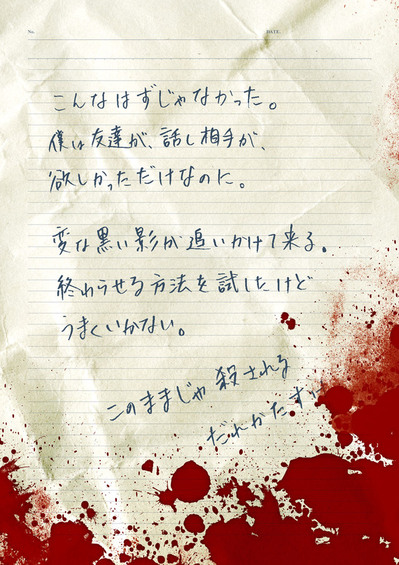 No.
DATE.
こんなはずじゃなかった。
僕は友達が、話し相手が、
欲しかっただけなのに。
変な黒い影が追いかけて来る。
終わらせる方法を試したけど
うまくいかない。
このままじゃ殺される
だれかたす